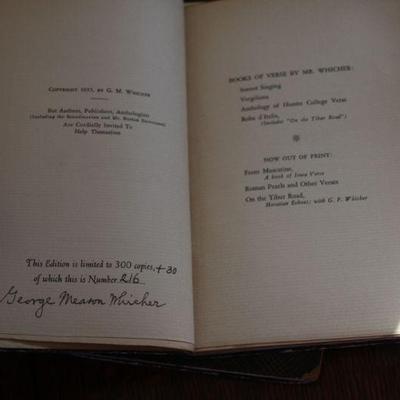 COPYRIGHT 1933, BY G. M. WHICHER
But Authors, Publishers, Anthologists
Are Cordially Invited To
Help Themselves
This Edition is limited to 300 copies, + 30
of which this is Number 216
George Meason Whicher
BOOKS OF VERSE BY MR. WHICHER:
Sonnet Singing
Vergiliana
Anthology of Hunter College Verse
Roba d'Italia,
(Includes "On the Tibur Road")
NOW OUT OF PRINT:
From Muscatine,
A book of Iowa Verse
Roman Pearls and Other Verses
On the Tibur Road,
Horatian Echoes; with G. F. Whicher